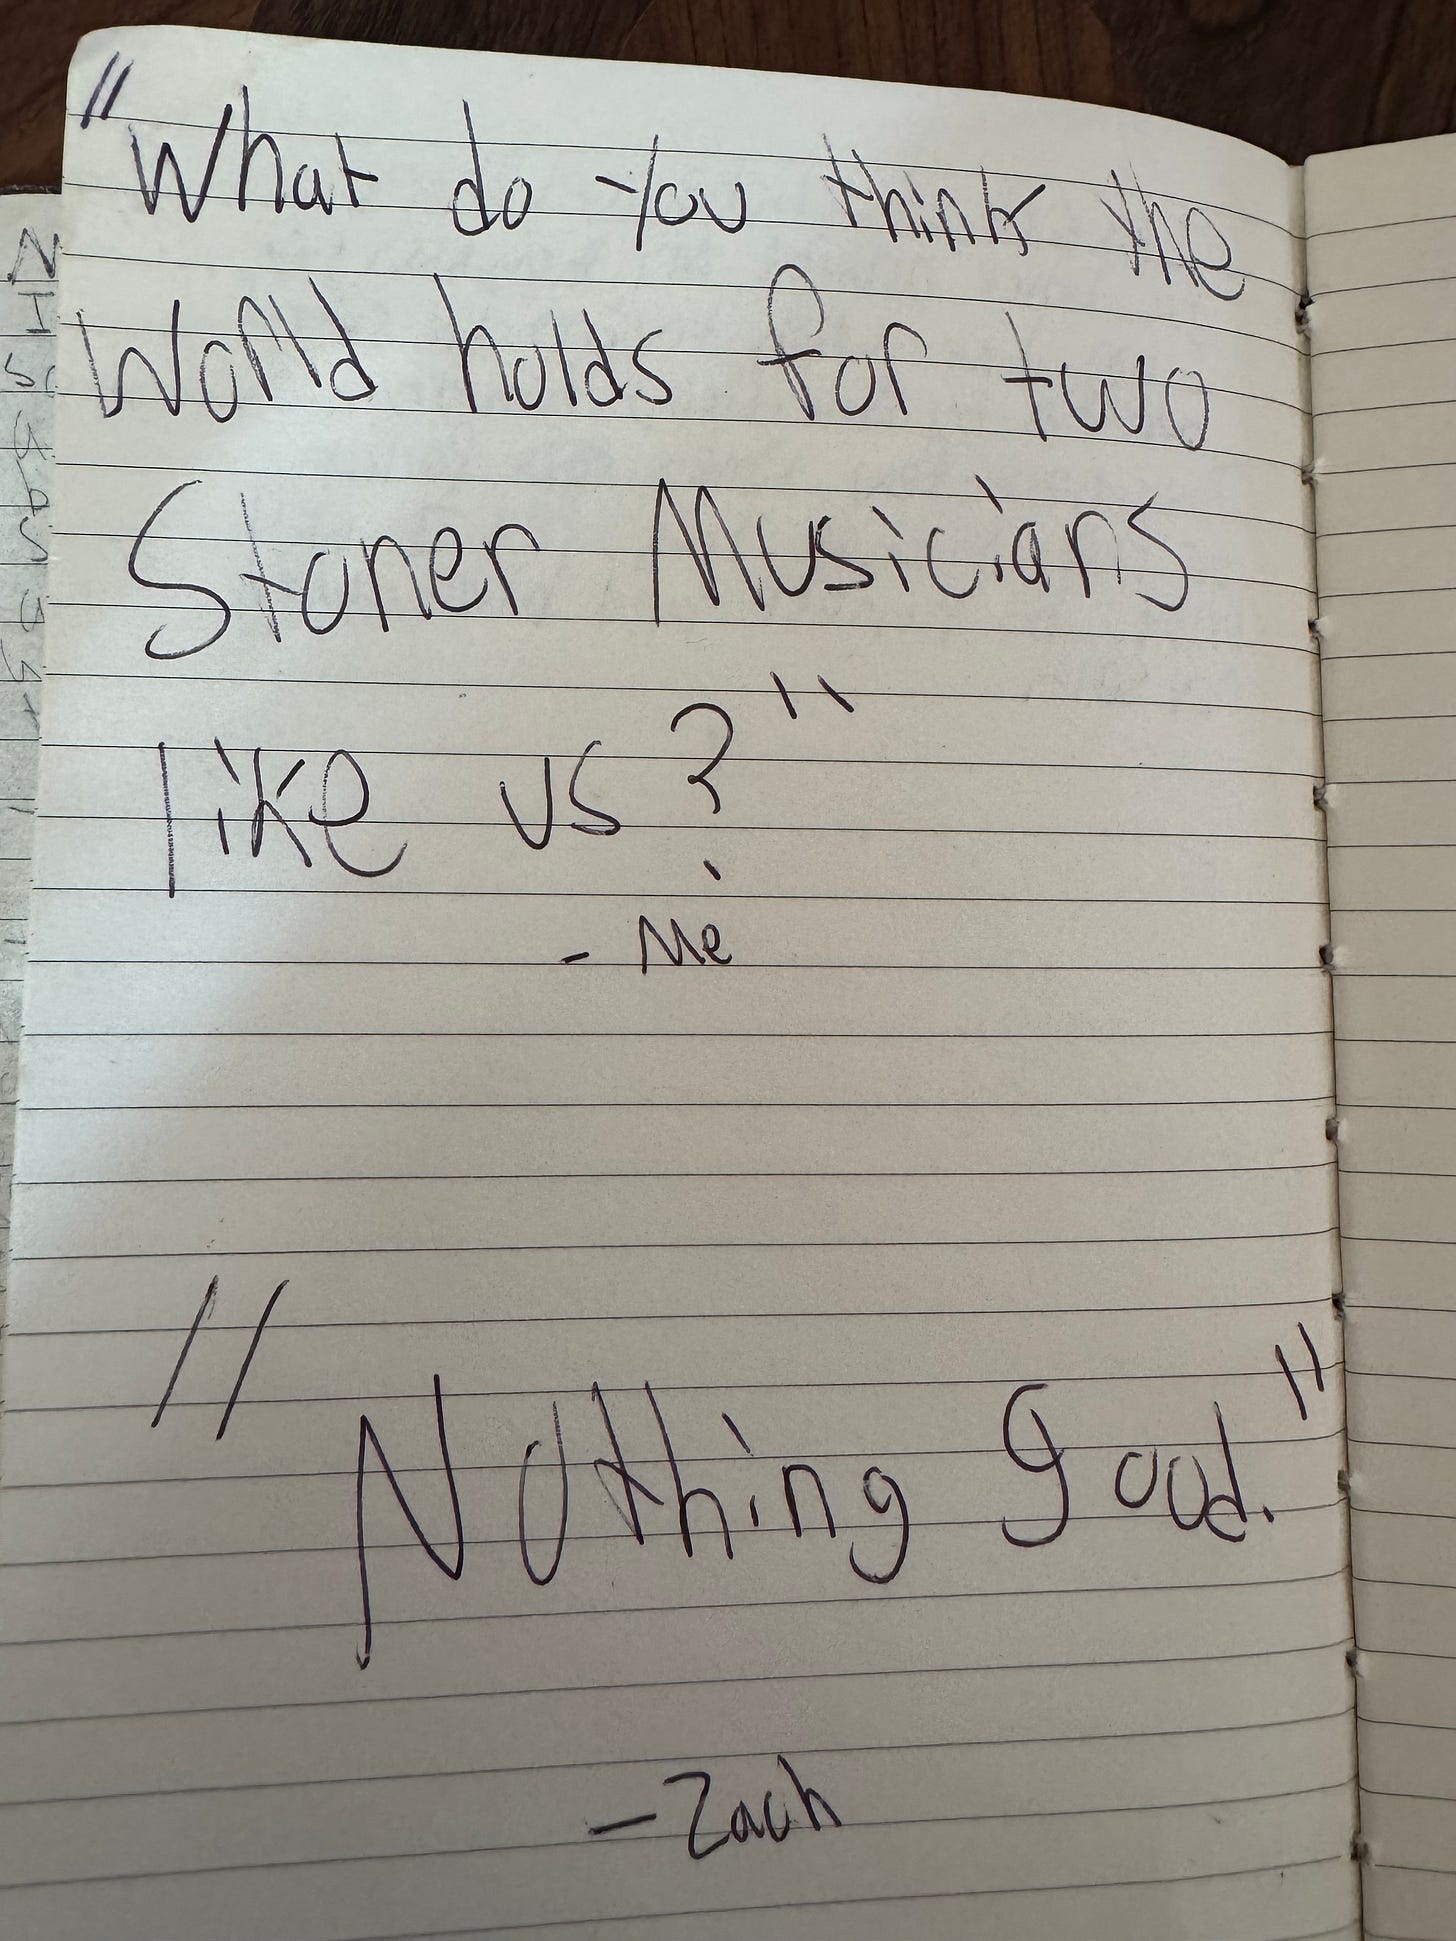 "What do you think the
World holds for two
Stoner Musicians
like us?"
- Me
"Nothing good."
- Zach